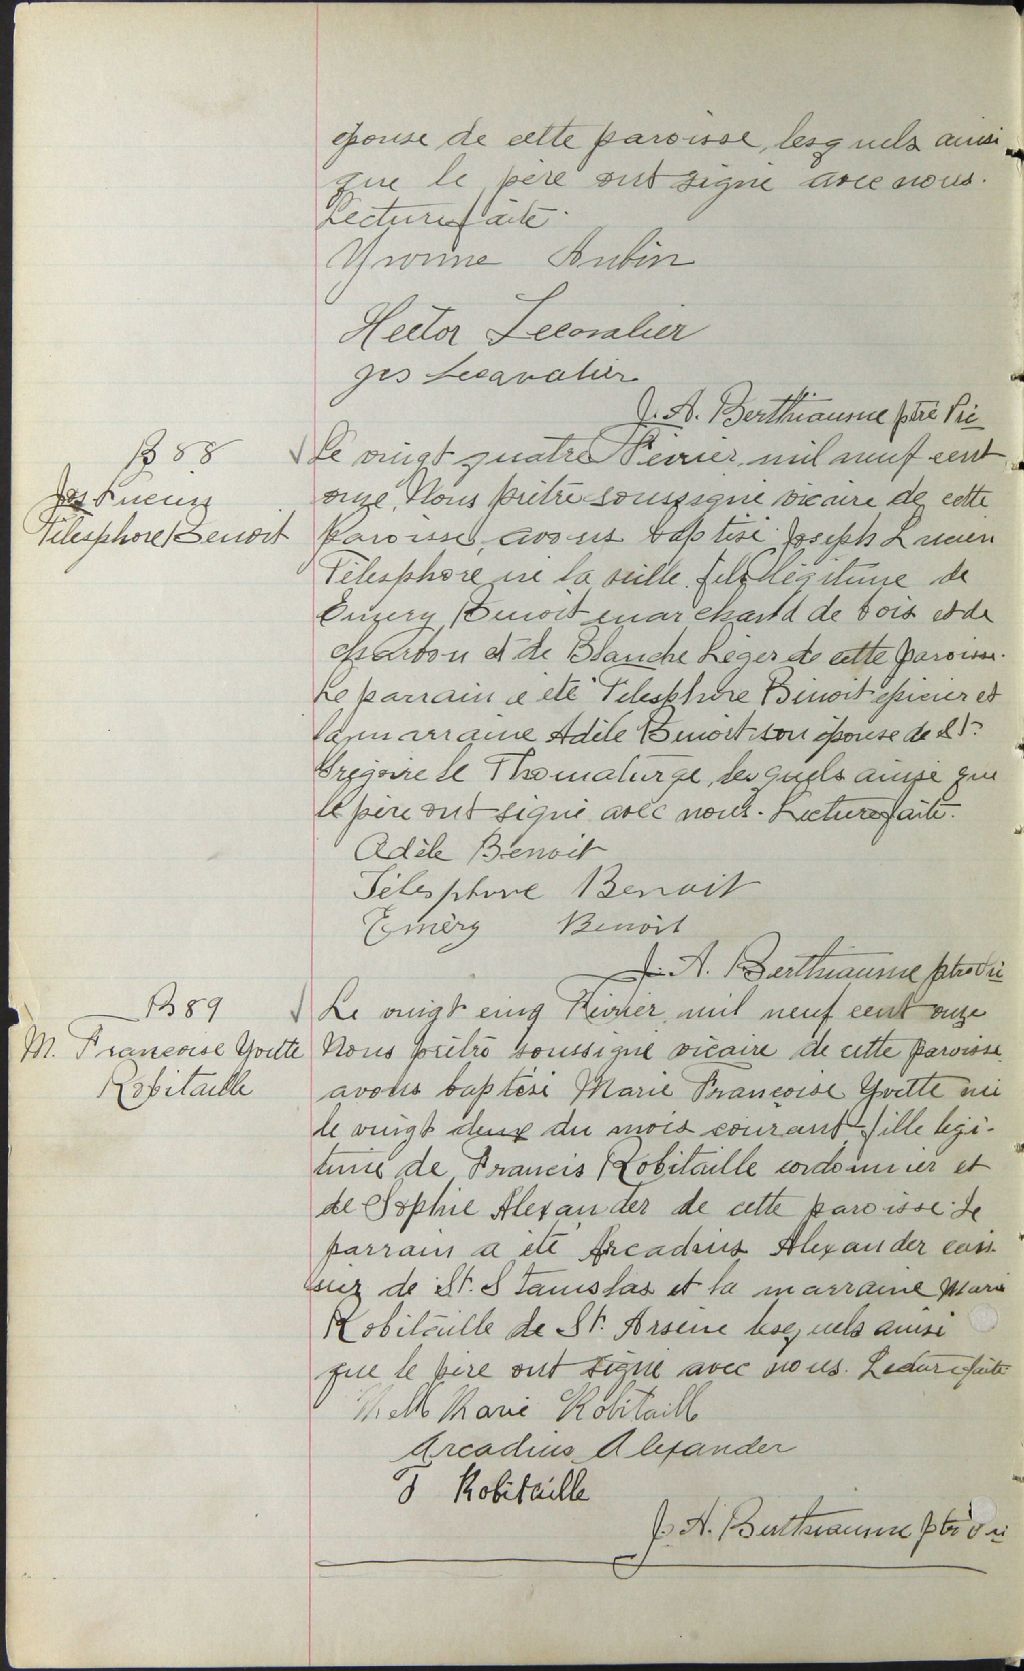 épouse de cette paroisse, lesquels ainsi
que le père ont signé avec nous.
Lecture faite.
Yvonne Aubin
Hector Lecavalier
Jos Lecavalier
J. A. Berthiaume ptre Vic
B 88
Jos Lucien
Télesphore Benoit
Le vingt quatre Février mil neuf cent
onze, Nous prêtre soussigné vicaire de cette
Paroisse, avons baptisé Joseph Lucien
Télesphore né la veille fils légitime de
Emery Benoit marchand de bois et de
charbon et de Blanche Léger de cette paroisse.
Le parrain a été Télesphore Benoit épicier et
la marraine Adèle Benoit son épouse de St.
Grégoire le Thomaturge, lesquels ainsi que
le père ont signé avec nous. Lecture faite.
Adèle Benoit
Télesphore Benoit
Eméry Benoit
J. A. Berthiaume ptre Vic
B 89
M. Françoise Yvette
Robitaille
Le vingt cinq Février mil neuf cent onze
Nous prêtre soussigné vicaire de cette paroisse
avons baptisé Marie Françoise Yvette né
le vingt deux du mois courant, fille légi-
time de Francis Robitaille cordonnier et
de Sophie Alexander de cette paroisse. Le
parrain a été Arcadius Alexander cais-
sier de St. Stanislas et la marraine Marie
Robitaille de St. Arsène lesquels ainsi
que le père ont signé avec nous. Lecture faite
Melle Marie Robitaille
Arcadius Alexander
F Robitaille
J. A. Berthiaume ptre Vic